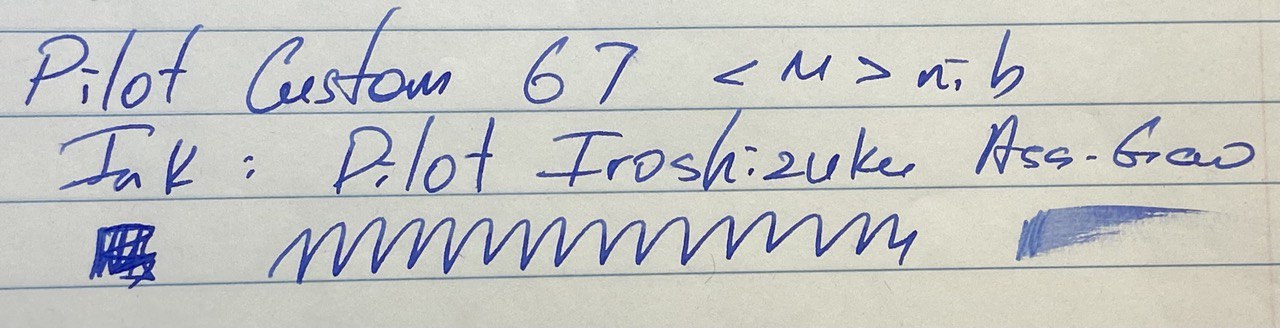 Pilot Custom 67 <M> nib
Ink: Pilot Iroshizuku Asa-Gao